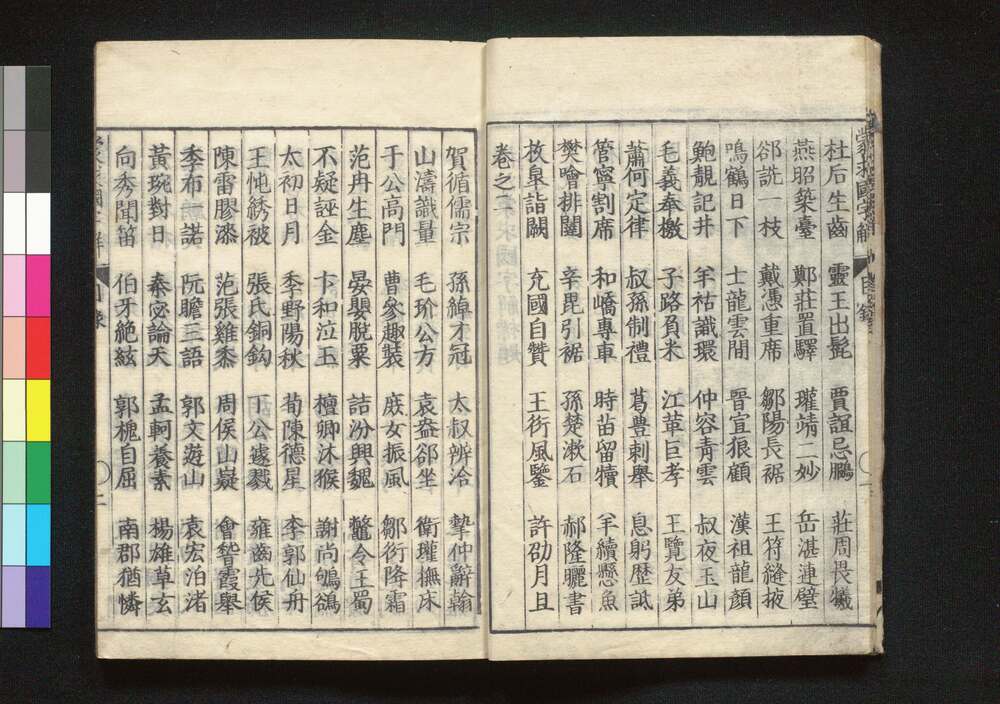 蒙求國字解 目錄
杜后生齒 靈王出髭 賈誼忌鵩 莊周畏犧
燕昭築臺 鄭莊置驛 瓘靖二妙 岳湛連璧
郤詵一枝 戴憑重席 鄒陽長裾 王符縫掖
鳴鶴日下 士龍雲間 晉宣狼顧 漢祖龍顏
鮑靚記井 羊祜識環 仲容青雲 叔夜玉山
毛義奉檄 子路負米 江革巨孝 王覽友弟
蕭何定律 叔孫制禮 葛豐刺舉 息躬歷詆
管寧割席 和嶠專車 時苗留犢 羊續懸魚
樊噲排闥 辛毘引裾 孫楚漱石 郝隆曬書
枚皐詣闕 充國自贊 王衍風鑒 許劭月旦
卷之二
賀循儒宗 孫綽才冠 太叔辨洽 摯仲辭翰
山濤識量 毛玠公方 袁盎郤坐 衛瓘撫床
于公高門 曹參趣裝 庶女振風 鄒衍降霜
范冉生塵 晏嬰脫粟 詰汾興魏 鱉令王蜀
不疑誣金 卞和泣玉 檀卿沐猴 謝尚鴝鵒
太初日月 季野陽秋 荀陳德星 李郭仙舟
王忳綉被 張氏銅鈎 丁公遽戮 雍齒先侯
陳雷膠漆 范張雞黍 周侯山嶷 會稽霞舉
季布一諾 阮瞻三語 郭文遊山 袁宏泊渚
黃琬對日 秦宓論天 孟軻養素 楊雄草玄
向秀聞笛 伯牙絶絃 郭槐自屈 南郡猶憐